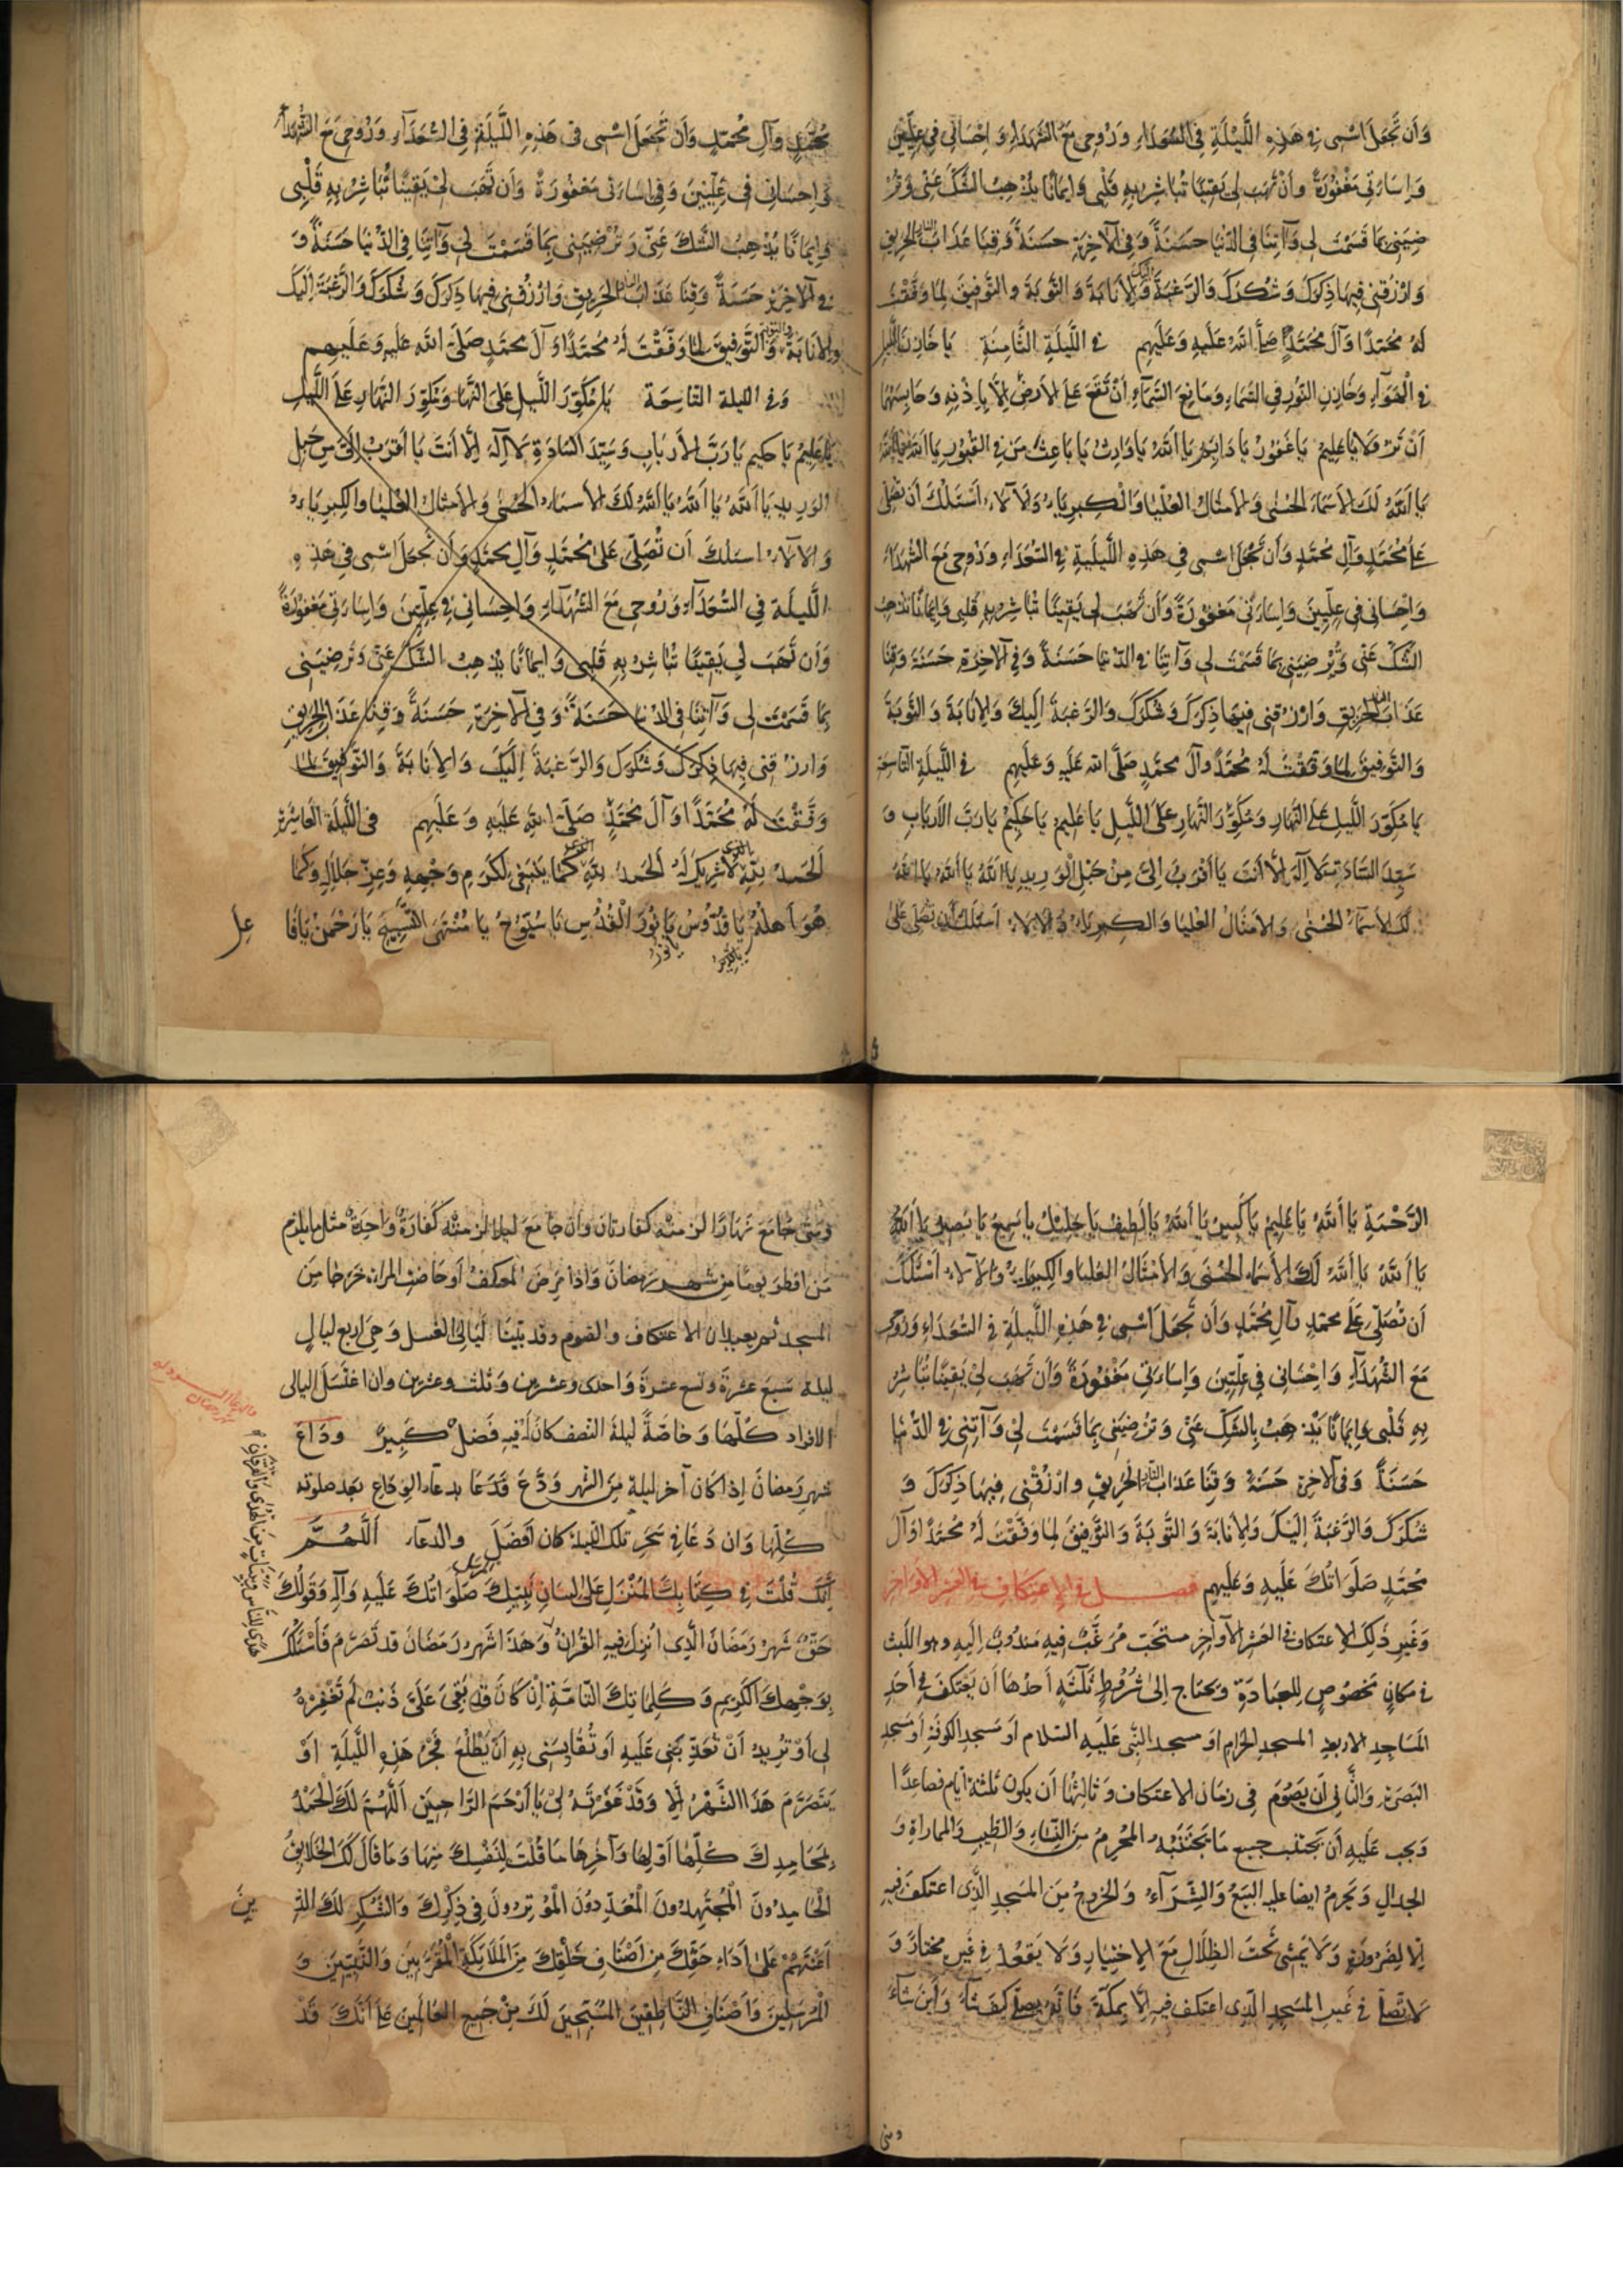 وَأَن تَجْعَلَ اسْمِى فِى هَذِهِ اللَّيْلَةِ فِى السُّعَدَاءِ وَرُوحِى مَعَ الشُّهَدَاءِ وَ اِحْسَانِى فِى عِلِّيِّينَ
وَاِسَاءَتِى مَغْفُورَةً وَأَنْ تَهَبَ لِى يَقِينًا تُبَاشِرُ بِهِ قَلْبِى وَاِيمَانًا يُذْهِبُ الشَّكَّ عَنِّى وَتُرْ
ضِيَنِى بِمَا قَسَمْتَ لِى وَآتِنَا فِى الدُّنْيَا حَسَنَةً وَفِى الْآخِرَةِ حَسَنَةً وَقِنَا عَذَابَ النَّارِ الْحَرِيقِ
وَارْزُقْنِى فِيهَا ذِكْرَكَ وَشُكْرَكَ وَالرَّغْبَةَ اِلَيْكَ وَالْاِنَابَةَ وَ التَّوْبَةَ وَ التَّوْفِيقَ لِمَا وَفَّقْتَ
لَهُ مُحَمَّدًا وَآلَ مُحَمَّدٍ صَلَّى اللهُ عَلَيْهِ وَعَلَيْهِم فى اللَّيْلَةِ الثَّامِنَةِ يَا خَازِنَ اللَّيْلِ
فِى الْهَوَآءِ وَخَازِنَ النُّورِ فِى السَّمَاءِ وَمَانِعَ السَّمَآءِ أَنْ تَقَعَ عَلَى الْاَرْضِ اِلَّا بِاِذْنِهِ وَحَابِسَهُمَا
أَنْ تَزُولَا يَا عَلِيمُ يَا غَفُورُ يَا دَائِمُ يَا اَللهُ يَا وَارِثُ يَا بَاعِثَ مَنْ فِى الْقُبُورِ يَا اَللهُ يَا اَللهُ
يَا اَللهُ لَكَ الْاَسْمَاءُ الْحُسْنٰى وَالْاَمْثَالُ الْعُلْيَا وَالْكِبْرِيَاءُ وَالْآلَاءُ اَسْئَلُكَ أَن تُصَلِّىَ
عَلَى مُحَمَّدٍ وَآلِ مُحَمَّدٍ وَأَن تَجْعَلَ اسْمِى فِى هَذِهِ اللَّيْلَةِ فِى السُّعَدَاءِ وَرُوحِى مَعَ الشُّهَدَاءِ
وَاِحْسَانِى فِى عِلِّيِّينَ وَاِسَاءَتِى مَغْفُورَةً وَأَن تَهَبَ لِى يَقِينًا تُبَاشِرُ بِهِ قَلْبِى وَاِيمَانًا يُذْهِبُ
الشَّكَّ عَنِّى وَتُرْضِيَنِى بِمَا قَسَمْتَ لِى وَآتِنَا فى الدُّنْيَا حَسَنَةً وَفِى الْآخِرَةِ حَسَنَةً وَقِنَا
عَذَابَ النَّارِ الْحَرِيقِ وَارْزُقْنِى فِيهَا ذِكْرَكَ وَشُكْرَكَ وَالرَّغْبَةَ اِلَيْكَ وَالْاِنَابَةَ وَالتَّوْبَةَ
وَالتَّوْفِيقَ لِمَا وَفَّقْتَ لَهُ مُحَمَّدًا وَآلَ مُحَمَّدٍ صَلَّى الله عَلَيْهِ وَعَلَيْهِم فى اللَّيْلَةِ التَّاسِعَةِ
يَا مُكَوِّرَ اللَّيْلِ عَلَى النَّهَارِ وَمُكَوِّرَ النَّهَارِ عَلَى اللَّيْلِ يَا عَلِيمُ يَا حَكِيمُ يَا رَبَّ الْاَرْبَابِ وَ
سَيِّدَ السَّادَةِ لَا اِلٰهَ اِلَّا أَنْتَ يَا أَقْرَبَ اِلَىَّ مِنْ حَبْلِ الْوَرِيدِ يَا اَللهُ يَا اَللهُ يَا اَللهُ
لَكَ الْاَسْمَآءُ الْحُسْنٰى وَالْاَمْثَالُ الْعُلْيَا وَالْكِبْرِيَاءُ وَالْآلَاءُ اَسْئَلُكَ أَن تُصَلِّىَ عَلَى
مُحَمَّدٍ وَآلِ مُحَمَّدٍ وَأَن تَجْعَلَ اسْمِى فى هَذِهِ اللَّيْلَةِ فِى السُّعَدَآءِ وَرُوحِى مَعَ الشُّهَدَآءِ
وَاِحْسَانِى فِى عِلِّيِّينَ وَفِى اِسَاءَتِى مَغْفُورَةً وَأَن تَهَبَ لِى يَقِينًا تُبَاشِرُ بِهِ قَلْبِى
وَاِيمَانًا يُذْهِبُ الشَّكَّ عَنِّى وَتُرْضِيَنِى بِمَا قَسَمْتَ لِى وَآتِنَا فِى الدُّنْيَا حَسَنَةً وَ
فِى الْآخِرَةِ حَسَنَةً وَقِنَا عَذَابَ النَّارِ الْحَرِيقِ وَارْزُقْنِى فِيهَا ذِكْرَكَ وَشُكْرَكَ وَالرَّغْبَةَ اِلَيْكَ
وَالْاِنَابَةَ وَالتَّوْبَةَ وَالتَّوْفِيقَ لِمَا وَفَّقْتَ لَهُ مُحَمَّدًا وَآلَ مُحَمَّدٍ صَلَّى اللهُ عَلَيْهِ وَعَلَيْهِم
وَفى الليلة التَّاسِعَة يَا مُكَوِّرَ اللَّيْلِ عَلَى النَّهَارِ وَمُكَوِّرَ النَّهَارِ عَلَى اللَّيْلِ
يَا عَلِيمُ يَا حَكِيمُ يَا رَبَّ الْاَرْبَابِ وَسَيِّدَ السَّادَةِ لَا اِلٰهَ اِلَّا أَنْتَ يَا أَقْرَبَ اِلَىَّ مِنْ حَبْلِ
الْوَرِيدِ يَا اَللهُ يَا اَللهُ يَا اَللهُ لَكَ الْاَسْمَاءُ الْحُسْنٰى وَالْاَمْثَالُ الْعُلْيَا وَالْكِبْرِيَاءُ
وَالْآلَاءُ اسئلكَ أَن تُصَلِّىَ عَلَى مُحَمَّدٍ وَآلِ مُحَمَّدٍ وَأَن تَجْعَلَ اسْمِى فِى هَذِهِ
اللَّيْلَةِ فِى السُّعَدَآءِ وَرُوحِى مَعَ الشُّهَدَآءِ وَاِحْسَانِى فِى عِلِّيِّينَ وَاِسَاءَتِى مَغْفُورَةً
وَأَن تَهَبَ لِى يَقِينًا تُبَاشِرُ بِهِ قَلْبِى وَاِيمَانًا يُذْهِبُ الشَّكَّ عَنِّى وَتُرْضِيَنِى
بِمَا قَسَمْتَ لِى وَآتِنَا فِى الدُّنْيَا حَسَنَةً وَفِى الْآخِرَةِ حَسَنَةً وَقِنَا عَذَابَ الْحَرِيقِ
وَارْزُقْنِى فِيهَا ذِكْرَكَ وَشُكْرَكَ وَالرَّغْبَةَ اِلَيْكَ وَالْاِنَابَةَ وَالتَّوْفِيقَ لِمَا
وَفَّقْتَ لَهُ مُحَمَّدًا وَآلَ مُحَمَّدٍ صَلَّى اللهُ عَلَيْهِ وَعَلَيْهِم فى اللَّيْلَةِ الْعَاشِرَةِ
اَلْحَمْدُ لِلّٰهِ لَا شَرِيكَ لَهُ اَلْحَمْدُ لِلّٰهِ كَمَا يَنْبَغِى لِكَرَمِ وَجْهِهِ وَعِزِّ جَلَالِهِ وَكَمَا
هُوَ أَهْلُهُ يَا قُدُّوسُ يَا نُورَ الْقُدْسِ يَا سُبُّوحُ يَا مُنْتَهَى التَّسْبِيحِ يَا رَحْمٰنُ يَا فَا
عِلَ
يَا نُورُ
الرَّحْمَةِ يَا اَللهُ يَا عَلِيمُ يَا كَبِيرُ يَا اَللهُ يَا لَطِيفُ يَا جَلِيلُ يَا سَمِيعُ يَا بَصِيرُ يَا اَللهُ
يَا اَللهُ يَا اَللهُ لَكَ الْاَسْمَاءُ الْحُسْنٰى وَالْاَمْثَالُ الْعُلْيَا وَالْكِبْرِيَاءُ وَالْآلَاءُ أَسْئَلُكَ
أَن تُصَلِّىَ عَلَى مُحَمَّدٍ وَآلِ مُحَمَّدٍ وَأَن تَجْعَلَ اسْمِى فِى هَذِهِ اللَّيْلَةِ فِى السُّعَدَاءِ وَرُوحِى
مَعَ الشُّهَدَآءِ وَاِحْسَانِى فِى عِلِّيِّينَ وَاِسَاءَتِى مَغْفُورَةً وَأَن تَهَبَ لِى يَقِينًا تُبَاشِرُ
بِهِ قَلْبِى وَاِيمَانًا يَذْهَبُ بِالشَّكِّ عَنِّى وَتُرْضِيَنِى بِمَا قَسَمْتَ لِى وَآتِنِى فِى الدُّنْيَا
حَسَنَةً وَفِى الْآخِرَةِ حَسَنَةً وَقِنَا عَذَابَ النَّارِ الْحَرِيقِ وارْزُقْنِى فِيهَا ذِكْرَكَ وَ
شُكْرَكَ وَالرَّغْبَةَ اِلَيْكَ وَالْاِنَابَةَ وَ التَّوْبَةَ وَ التَّوْفِيقَ لِمَا وَفَّقْتَ لَهُ مُحَمَّدًا وَآلَ
مُحَمَّدٍ صَلَوَاتُكَ عَلَيْهِ وَعَلَيْهِم فصل فى الاعتكاف فى العشر الاواخر
وَغَيْرِ ذَلِكَ الاعتكاف فى العَشْرِ الْاَوَاخِرِ مستحَبّ مُرَغَّبٌ فِيهِ مَندُوبٌ اِلَيهِ وهو اللَبث
فى مَكَانٍ مَخصُوصٍ لِلعِبَادَةِ وَيَحتَاج اِلٰى شُرُوطٍ ثَلٰثَةٍ أَحدُهَا أَن يَعْتَكِفَ فِى أَحَدِ
المَسَاجِدِ الاربعةِ المسجدِ الحَرَامِ اَو مسجد النَّبِى عَلَيهِ السَّلَام أَو مَسجدِ الكوفَةِ أَو مَسجِدِ
البَصرَة وَالثَّانِى أَن يَصُومَ فِى زمَان الاعتكاف وَثالِثُهَا أَن يكون ثلٰثة أيّام فصَاعِدًا
وَيجب عَلَيهِ أَن يَجتَنب جميع مَا يَجتَنبُهُ المُحرِمُ مِنَ النِّسَاءِ وَالطِّيبِ وَالمماراةِ وَ
الجدَالِ وَيَحرمُ ايضا عليه البَيعُ وَالشِّرَآءُ وَالخروجُ مِنَ المَسجدِ الَّذِى اعتكفَ فِيهِ
اِلّا لِضَرورَةٍ وَلَا يَمشى تَحتَ الظِّلَالِ مَعَ الاِختِيَارِ وَلَا يَقعُد فى غَيرِهِ مختارًا وَ
لَا يُصَلِّى فى غَيرِ المَسجِدِ الذِى اعتكف فيهِ اِلَّا بِمكّةَ فَاِنّه يصلّى كيفَ شَآءَ وَأينَ شَآءَ
وَمَتى جَامَعَ نَهَارًا لزمته كفّارتان وَان جَامَعَ ليلا لزمته كَفارَةٌ وَاحِدَةٌ مثل ما يلزم
مَن افطرَ يومًا مِن شهر رَمَضانَ وَاذا مَرضَ المعتكِفُ أَو حَاضَتِ المراة خَرَجَا مِنَ
المسجد ثم يعيدان الاعتكاف والصوم وقد بَيَّنّا لَيَالِى الغسل وَهِىَ اربع ليالٍ
ليلة سَبعَ عشرَة وتسع عشرَة وَاحدى وعشرين وثلث وعشرين وان اغتسَلَ ليالى
الافراد كُلّهَا وَخَاصَّةً ليلة النّصف كانَ فيه فَضلٌ كَبِيرٌ وداع
شهرِ رَمضانَ اِذا كان آخر ليلةٍ مِنَ الشهر وَدَّعَ فَدَعَا بدعآءِ الوداع بعد صلوته
كُلّها وَان دَعَا فى سَحَرِ تلك الليلة كان أفضَلَ والدعآء اَللّهُمَّ
اِنَّكَ قُلْتَ فى كِتَابِكَ المُنْزَلِ عَلَى لِسَانِ نَبِيِّكَ المرسل صَلَوَاتُكَ عَلَيْهِ وَآلِهِ وَقَوْلُكَ
حَقٌّ شَهْرُ رَمَضَانَ الَّذِى اُنْزِلَ فِيهِ القُرْانُ وَهَذَا شَهْرُ رَمَضَانَ قد تَصَرَّمَ فَأَسْئَلُكَ
هُدًى لِلنَّاسِ وَبَيِّنَاتٍ مِنَ الْهُدَى وَالْفُرْقَانِ
بِوَجْهِكَ الْكَرِيمِ وَكَلِمَاتِكَ التَّامَّةِ اِنْ كَانَ قد بَقِىَ عَلَىَّ ذَنْبٌ لَم تَغْفِرْهُ
لِى أَوْ تُرِيدُ أَنْ تُعَذِّبَنِى عَلَيْهِ أَو تُقَايِسَنِى بِهِ اَنْ يَطْلُعَ فَجْرُ هَذِهِ اللَّيْلَةِ اَوْ
يَتَصَرَّمَ هَذَا الشَّهْرُ اِلَّا وَقَدْ غَفَرْتَهُ لِى يَا أَرْحَمَ الرَّاحِمِينَ اَللّٰهُمَّ لَكَ الْحَمْدُ
بِمَحَامِدِكَ كُلِّهَا أَوَّلِهَا وَآخِرِهَا مَا قُلْتَ لِنَفْسِكَ مِنْهَا وَمَا قَالَ لَكَ الْخَلَائِقُ
الْحَامِدُونَ الْمُجْتَهِدُونَ الْمَعْدُودُونَ الْمُؤْثِرُونَ فِى ذِكْرِكَ وَالشُّكْرِ لَكَ الذ
ينَ
اَعَنْتَهُمْ عَلَى أَدَاءِ حَقِّكَ مِن اَصْنَافِ خَلْقِكَ مِنَ الْمَلَائِكَةِ الْمُقَرَّبِينَ وَالنَّبِيِّينَ وَ
الْمُرْسَلِينَ وَأَصْنَافِ النَّاطِقِينَ المُسَبِّحِينَ لَكَ مِنْ جَمِيعِ الْعَالَمِينَ عَلَى أَنَّكَ قَدْ